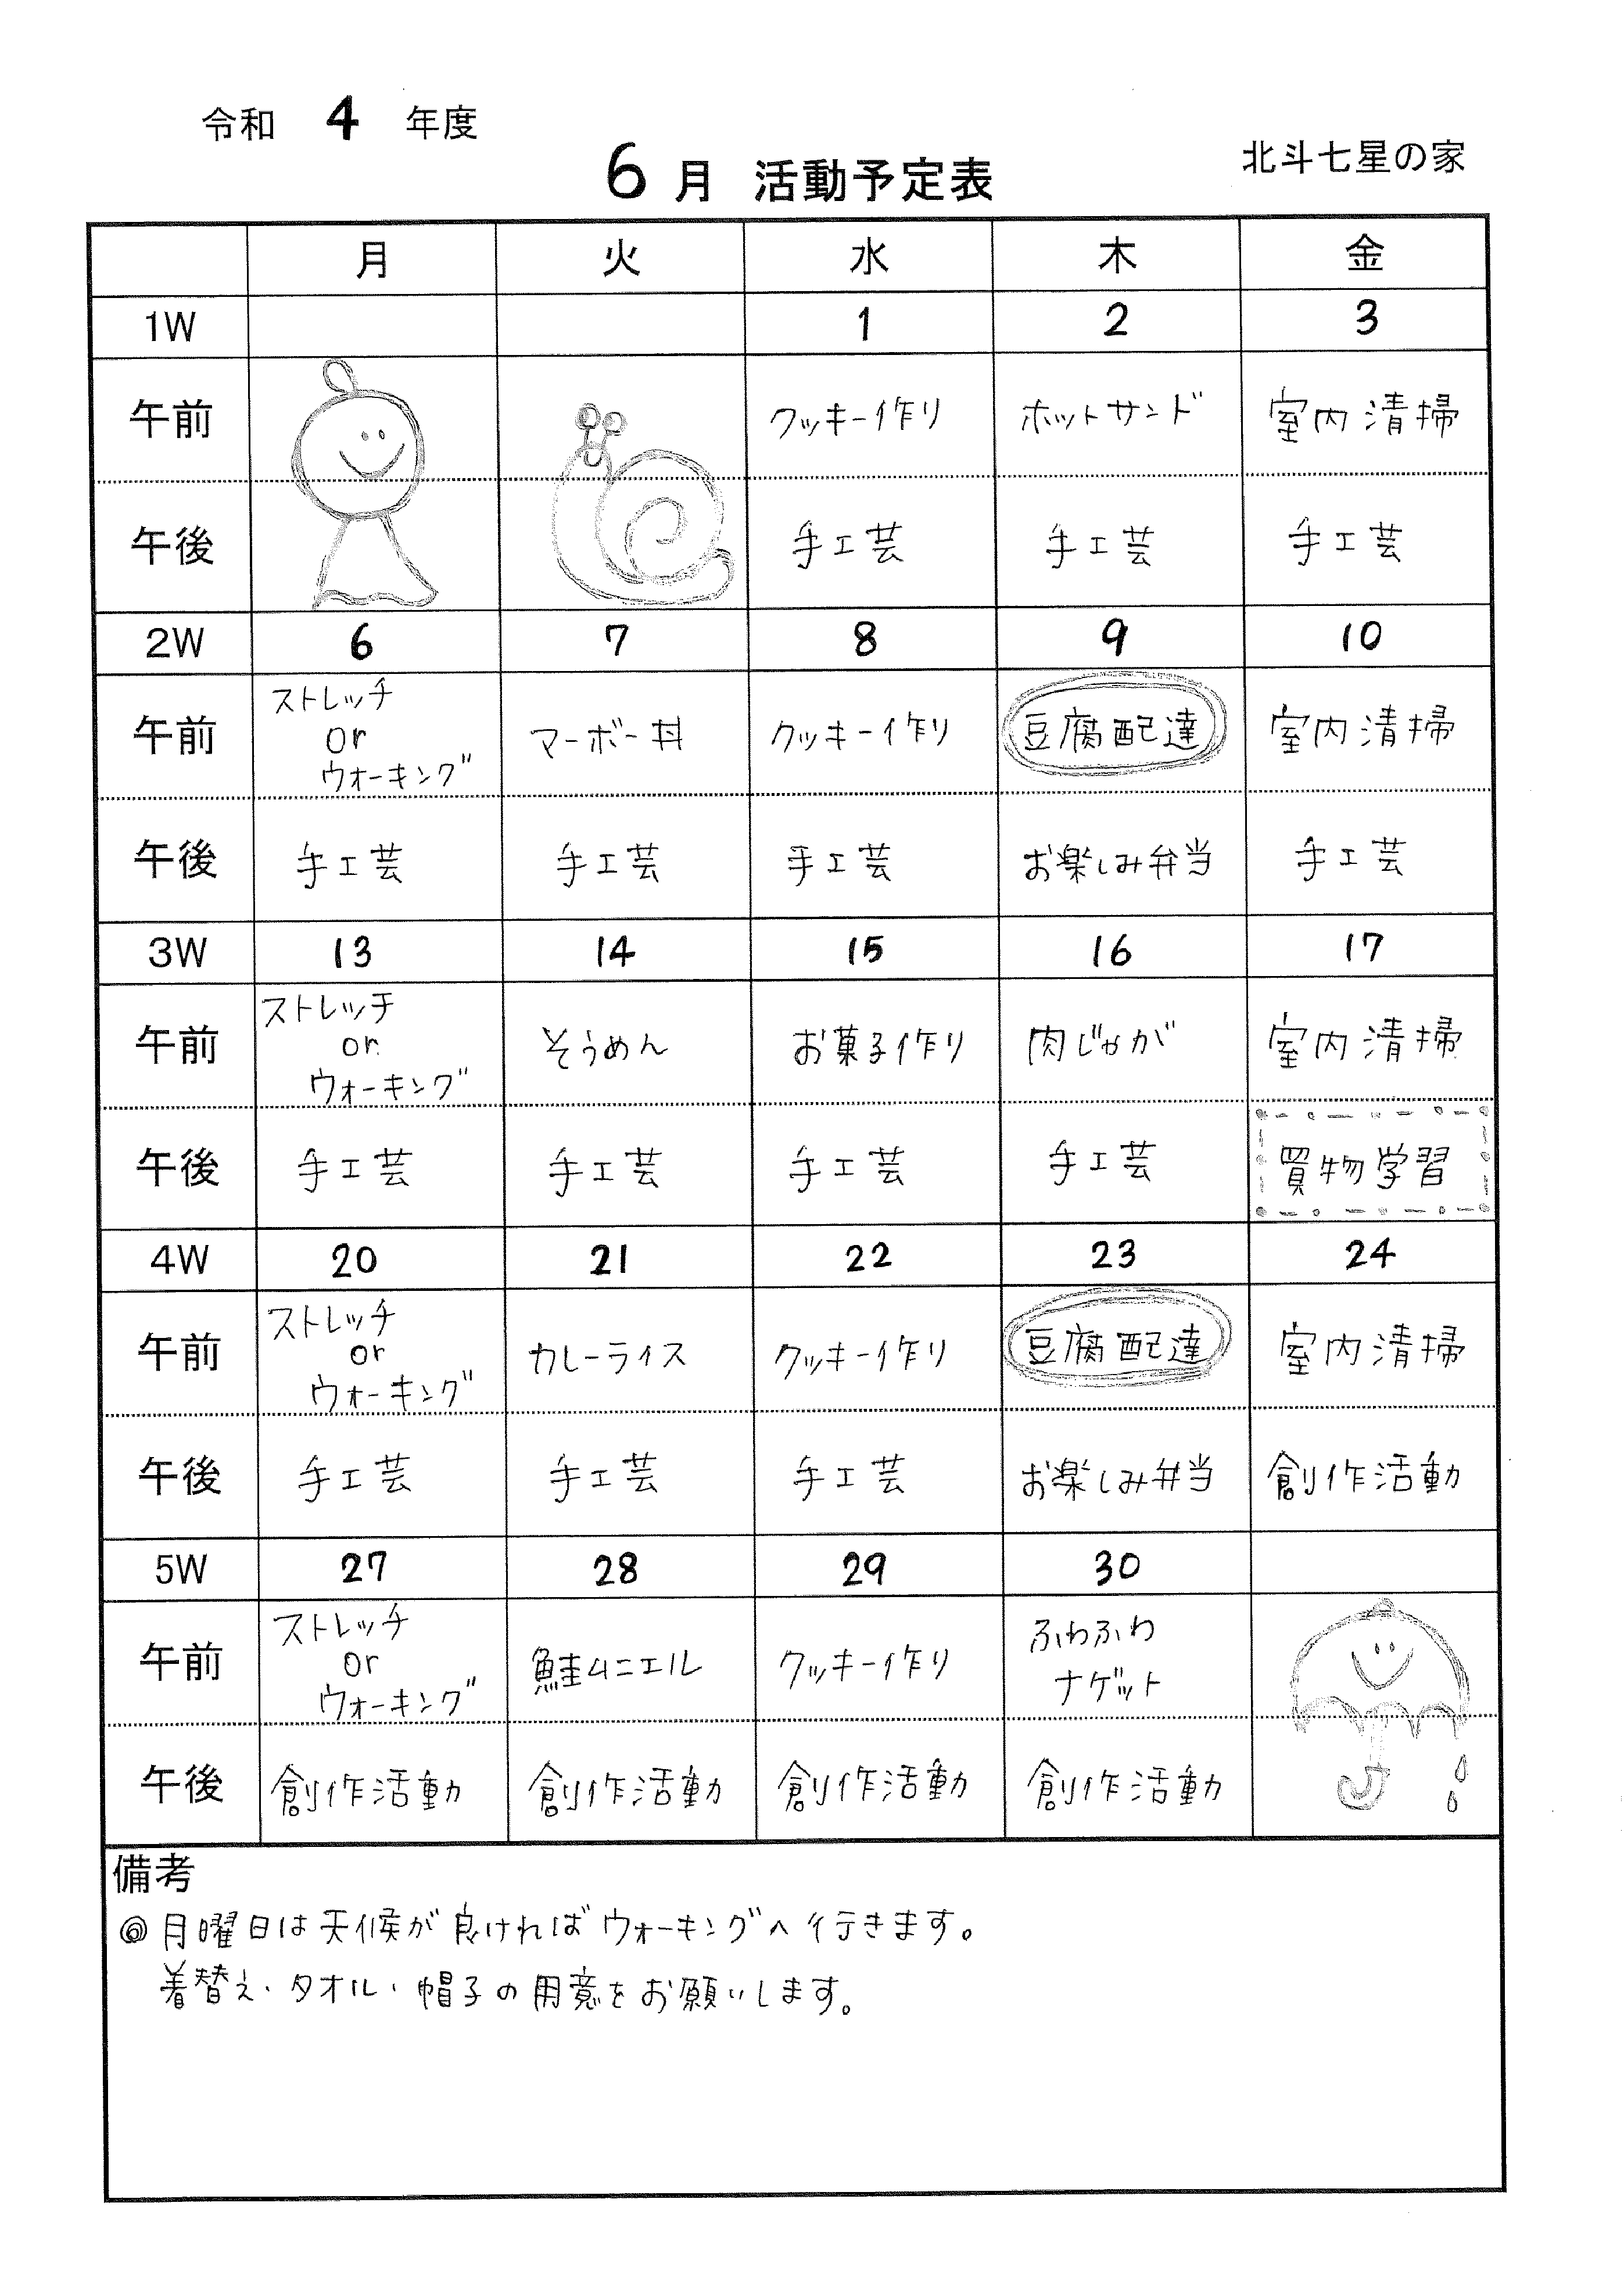 令和 4 年度
6月 活動予定表
北斗七星の家
月 火 水 木 金
1W 1 2 3
午前 クッキー作り ホットサンド 室内清掃
午後 手工芸 手工芸 手工芸
2W 6 7 8 9 10
午前 ストレッチ
or
ウォーキング マーボー丼 クッキー作り 豆腐配達 室内清掃
午後 手工芸 手工芸 手工芸 お楽しみ弁当 手工芸
3W 13 14 15 16 17
午前 ストレッチ
or
ウォーキング そうめん お菓子作り 肉じゃが 室内清掃
午後 手工芸 手工芸 手工芸 手工芸 買物学習
4W 20 21 22 23 24
午前 ストレッチ
or
ウォーキング カレーライス クッキー作り 豆腐配達 室内清掃
午後 手工芸 手工芸 手工芸 お楽しみ弁当 創作活動
5W 27 28 29 30
午前 ストレッチ
or
ウォーキング 鮭ムニエル クッキー作り ふわふわ
ナゲット
午後 創作活動 創作活動 創作活動 創作活動
備考
◎月曜日は天候が良ければウォーキングへ行きます。
着替え・タオル・帽子の用意をお願いします。